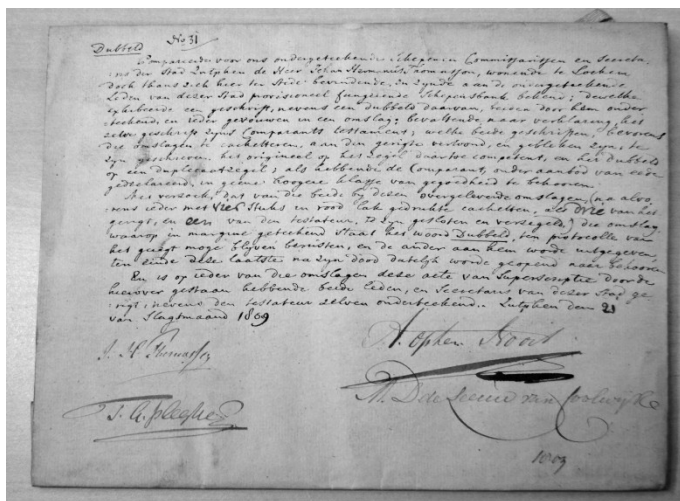 Dubbeld No 31
Compareerde voor ons ondergeteekende Schepenen Commissarissen en Secreta,
ris der Stad Zutphen de Heer Johan Hermanus Thomasson, wonende te Lochem,
doch thans zich hier ter Stede bevindende, en zynde aan de ondergeteekende
Leden van dezer Stad provisioneel fungeerende Schepenbank bekend; dewelke
exhibeerde een geschrift, nevens een dubbeld daarvan, beiden door hem onder
teekend, en ieder gevouwen in een omslag; bevattende naar verklaring, het
zelve geschrift zynes Comparants testament; welke beide geschriften, bevorens
die omslagen te cachetteren, aan den gerigte vertoond, en gebleken zyn, te
zyn geschreven het origineel op het Zegel daartoe competent, en het Dubbeld
op een duplicaat zegel; als hebbende de Comparant, onder aanbod van eede
gedeclareerd, in geene hoogere klasse van gegoedheid te behooren
Met verzoek, dat van die beide by dezen overgeleverde omslagen, (na alvo,
rens ieder met vier stuks in rood lak gedrukte cachetten, als drie van het
gerigt, en een van den testateur, te zyn gesloten en verzegeld) die omslag
waarop in margine geteekend staat het woord Dubbeld, ten protocolle van
het gerigt moge blyven berusten, en de ander aan hem worde uitgegeven,
ten einde deze laatste na zyn dood dadelyk worde geopend naar behooren
En is op ieder van die omslagen deze acte van Superscriptie door de
hierover gestaan hebbende beide Leden, en Secretaris van dezer Stad ge
rigt, nevens den testateur zelven onderteekend. Zutphen den 21
van Slagtmaand 1809
J. H. Thomasson
A. op ten Noort
M. D de Leeuw van Coolwijk
1809